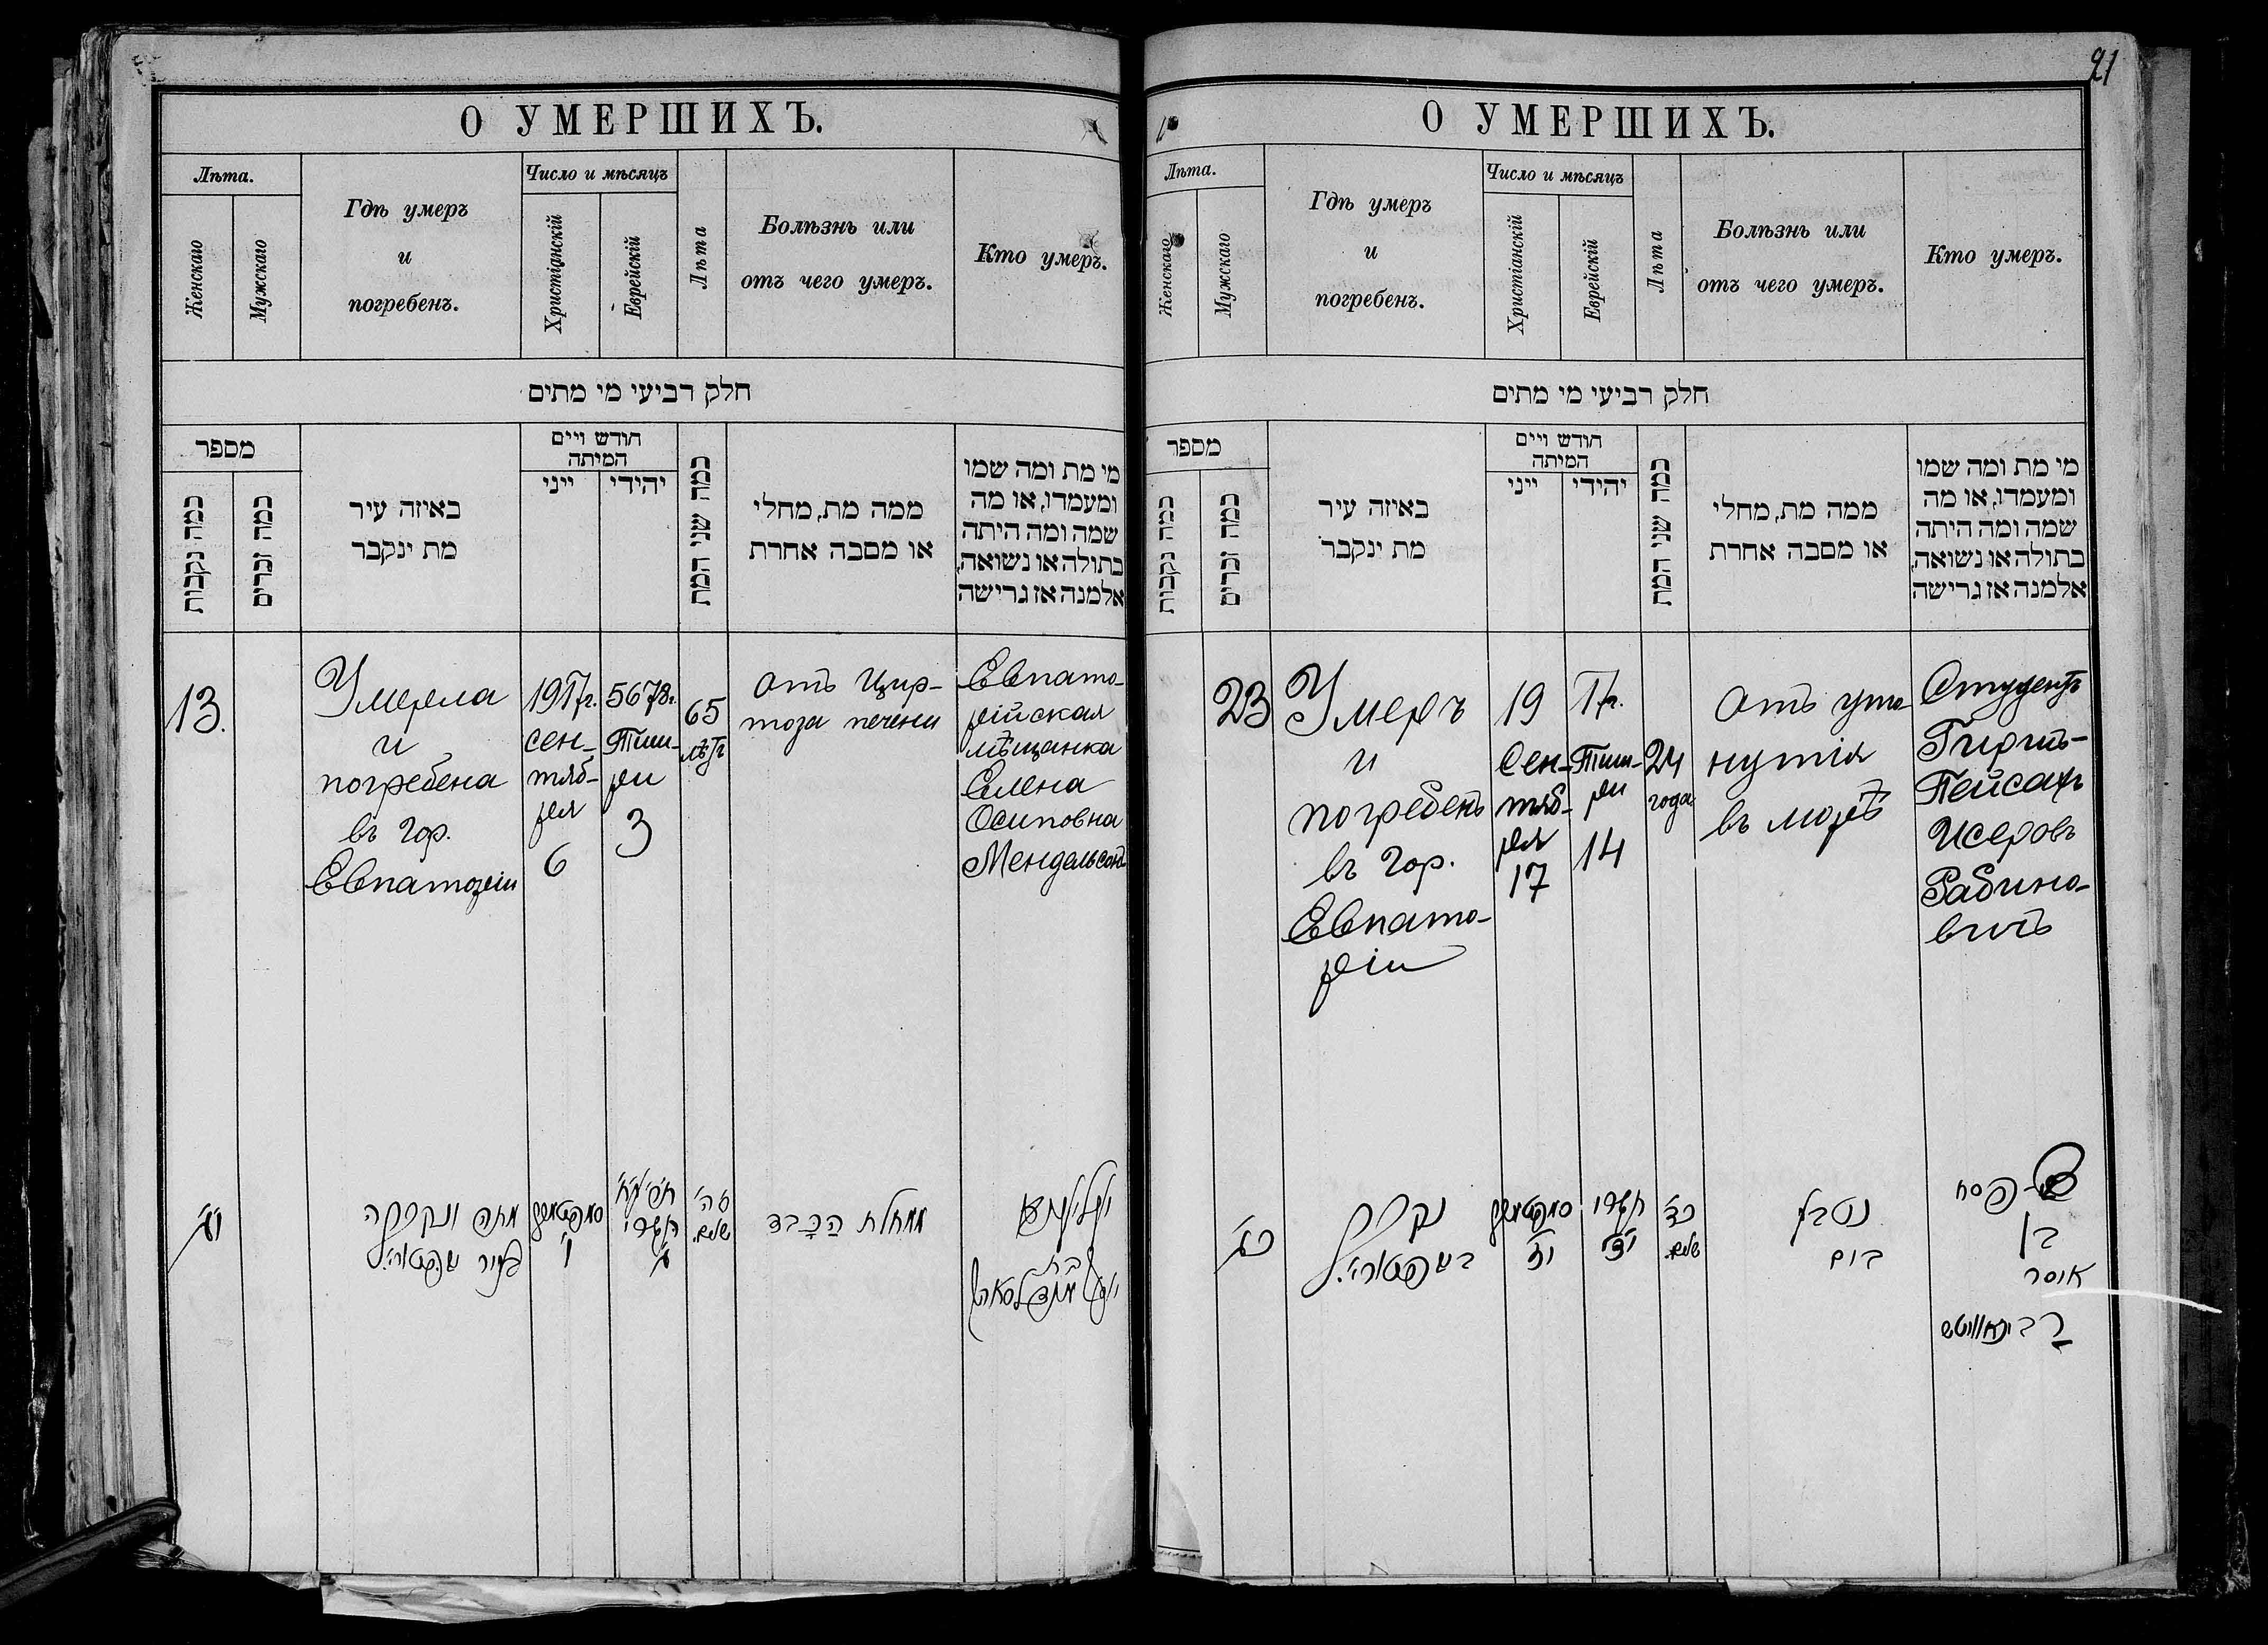 О УМЕРШИХЪ.
Лѣта.
Женскаго
Мужскаго
Гдѣ умеръ
и
погребенъ.
Число и мѣсяцъ
Христіанскій
Еврейскій
Лѣта
Болѣзнь или
отъ чего умеръ.
Кто умеръ.
חלק רביעי מי מתים
מספר
כמה נקבות
כמה זכרים
באיזה עיר
מת ינקבר
חודש ויים
המיתה
ייני
יהידי
כמה שני המת
ממה מת, מחלי
או מסבה אחרת
מי מת ומה שמו
ומעמדו, או מה
שמה ומה היתה
בתולה או נשואה,
אלמנה אז גרישה
13.
Умерла
и
погребена
въ гор.
Евпаторіи
1917г.
сен-
тяб-
ря
6
5678г.
Тиш-
ри
3
65
лѣтъ
отъ цир-
тоза печени
Евпато-
рійская
мѣщанка
Елена
Осиповна
Мендельсонъ
י"ג
מתה ונקברה
בעיר
סעפטעמבר
ו'
תרע"ח
תשרי
ג'
ס"ה
שנים
ממחלת הַכָּבֵד
בת
21
О УМЕРШИХЪ.
Лѣта.
Женскаго
Мужскаго
Гдѣ умеръ
и
погребенъ.
Число и мѣсяцъ
Христіанскій
Еврейскій
Лѣта
Болѣзнь или
отъ чего умеръ.
Кто умеръ.
חלק רביעי מי מתים
מספר
כמה נקבות
כמה זכרים
באיזה עיר
מת ינקבר
חודש ויים
המיתה
ייני
יהידי
כמה שני המת
ממה מת, מחלי
או מסבה אחרת
מי מת ומה שמו
ומעמדו, או מה
שמה ומה היתה
בתולה או נשואה,
אלמנה אז גרישה
23
Умеръ
и
погребенъ
въ гор.
Евпато-
ріи
19
Сен-
тяб-
ря
17
17г.
Тиш-
ри
14
24
года
отъ уто
нутія
въ морѣ
Студентъ
Гиршъ-
Пейсахъ
Исеровъ
Рабино-
вичъ
כ"ג
נקבר
סעפטעמבר
י"ז
תשרי
י"ד
כ"ד
שנים
נטבע
בים
פסח
בן
איסר
ראבינאוויטש